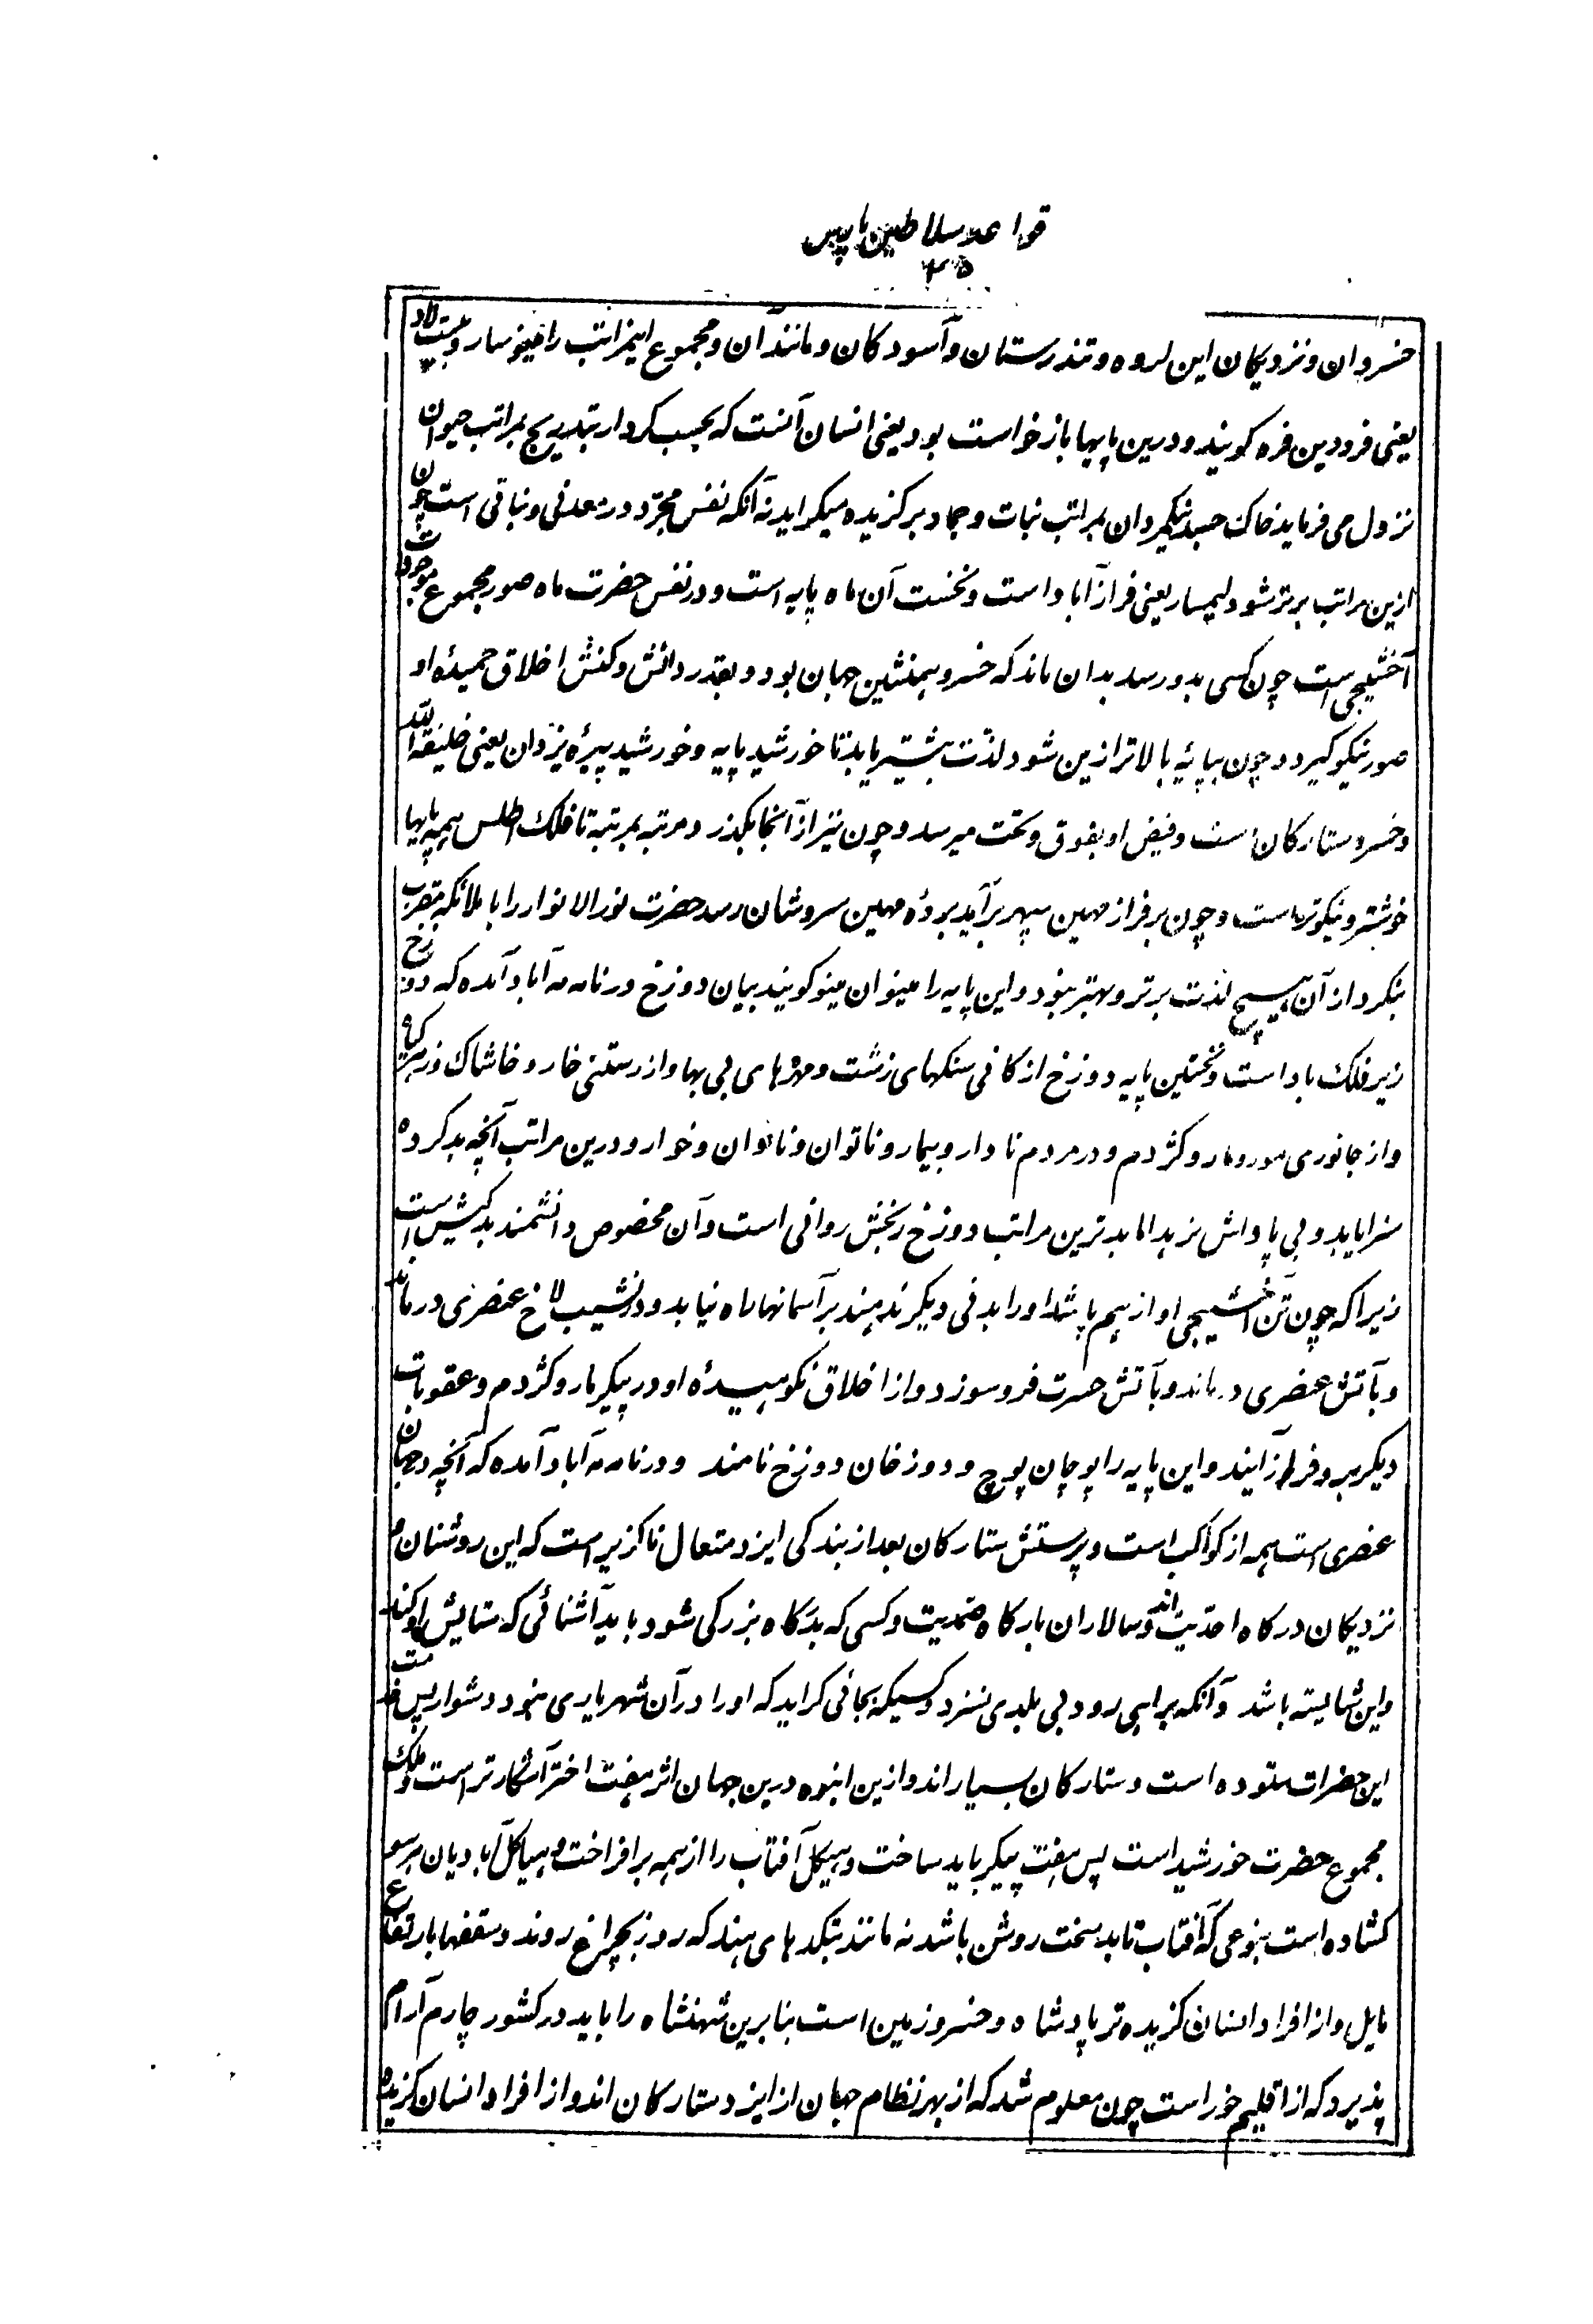 قواعد سلاطین پارس
۲۵
خسروان و نزدیکان این گروه و تندرستان و آسودکان و مانند آن و مجموع اینمراتب را مینوسار و
یعنی فرودین فره کویند و درین پایها بازخواست بود یعنی انسان آنست که بحسب کردار بتدریج بمراتب حیوان
نزول می فرماید خاک جسد نیکمردان بمراتب نبات و جماد برکزیده میکراید نه آنکه نفس مجرّد در معدنی و نباتی است چون
ازین مراتب برتر شود لیمسار یعنی فراز آباد است و نخست آن ماه پایه است و در نفس حضرت ماه صور مجموع موجودات
آخشیجی است چون کسی بدو رسد بدان ماند که خسرو همنشین جهان بود و بقدر دانش و کنش اخلاق حمیدهٔ او
صور نیکو کیرد و چون بپایهٔ بالاتر ازین شود لذّت بیشتر یابد تا خورشید پایه و خورشید پیرهٔ یزدان یعنی خلیفة اللّه
و خسرو ستارکان است و فیض او بفوق و تحت میرسد و چون نیز از آنجا بکذرد مرتبه بمرتبه تا فلک اطلس همه پایها
خوشتر و نیکوتر است و چون بر فراز مهین سپهر برآید بردهٔ مهین سروشان رسد حضرت نورالانوار را با ملائکه مقرب
بنکرد از آن هیچ لذت برتر و بهتر نبود و این پایه را مینوان مینو کویند بیان دوزخ در نامه مه آباد آمده که دوزخ
زیر فلک باد است و نختین پایه دوزخ از کانی سنکهای زشت و مهره های بی بها و از رستنی خار و خاشاک و زهر کیاه
و از جانوری مور و مار و کژدم و در مردم نادار و بیمار و ناتوان و نادان و خوار و درین مراتب آنچه بد کرده
سزا یابد و بی پاداش نرهد اما بدترین مراتب دوزخ رنجش روانی است و آن مخصوص دانشمند بدکیش است
زیرا که چون تن آخشیجی او از هم پاشد او را بدنی دیکر ندهند بر آسمانها راه نیابد و در نشیب لاخ عنصری درماند
و بآتش عنصری درماند و بآتش حسرت فرو سوزد و از اخلاق نکوهیدهٔ او در پیکر مار و کژدم و عقوبات
دیکر برو فراز آیند و این پایه را پوچان پوچ و دوزخان دوزخ نامند و در نامه مه آباد آمده که آنچه در جهان
عنصری است همه از کواکب است و پرستش ستارکان بعد از بندکی ایزد متعال ناکزیر است که این روشنان
نزدیکان درکاه احدّیت اند و سالاران بارکاه صمدیت و کسی که بدرکاه بزرکی شود باید آشنائی که ستایش او کند
و این شایسته باشد و آنکه براهی رود بی بلدی نسزد و کسیکه بجائی کراید که او را در آن شهر یاری نبود دشوار پس خدمت
این حضرات ستوده است و ستارکان بسیار اند و ازین انبوه درین جهان اثر هفت اختر آشکارتر است و ملک
مجموع حضرت خورشید است پس هفت پیکر باید ساخت و هیکل آفتاب را از همه برافراخت و هیاکل آبادیان هر سو
کشاده است بنوعی که آفتاب تابد سخت روشن باشد نه مانند بتکدهای هند که روز بچراغ روند و سقفها بارتفاع
مایل و از افراد انسان کزیده تر پادشاه و خسرو زمین است بنابرین شهنشاه را باید در کشور چارم آرام
پذیرد که از اقلیم خور است چون معلوم شد که از بهر نظام جهان از ایزد ستارکان اند و از افراد انسان کزیده